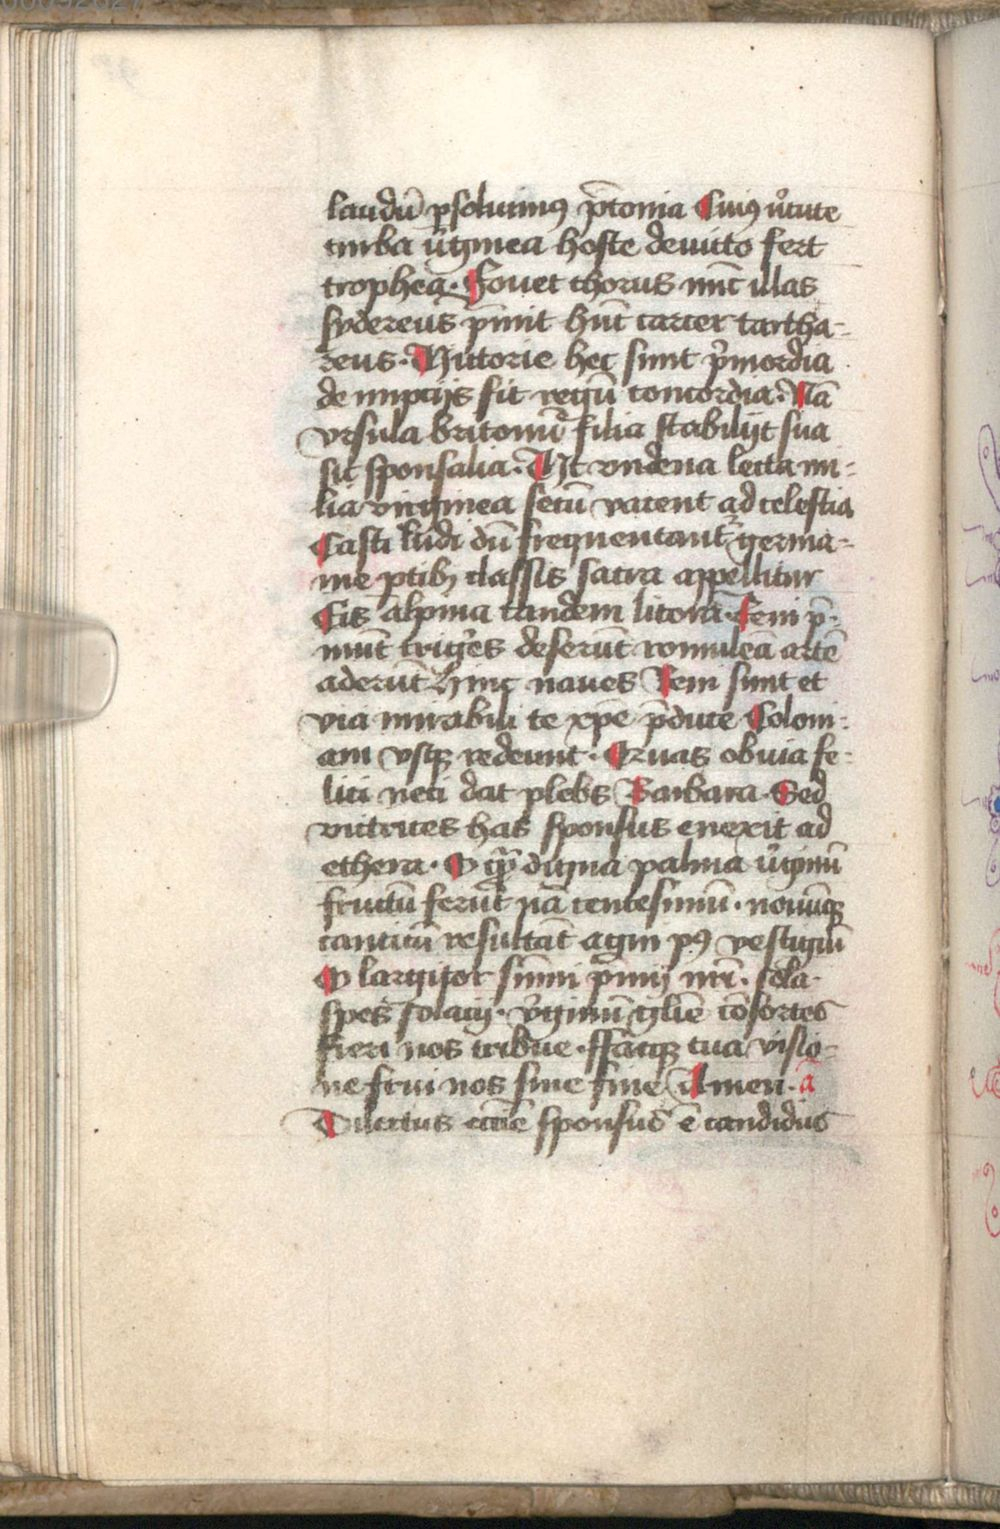 laudū psoluimus p̄conia Cuiꝰ v̾tute
turba v̾ginea hoste deuicto fert
trophea. Fouet thorus nūc illas
sydereus p̄mit hūc carcer tartha-
reus. Victorie hec sunt p̾mordia
de nupcijs fit regū concordia. Nā
vrsula britonū filia stabilijt sua
sic sponsalia. Ut vndena lecta mi-
lia virginea secū vacent ad celestia
Casti ludi dū frequentant᷑ germa-
nie ptibꝫ classis sacra appellitur
Cis alpina tandem litora. Seni p̄-
niūt trig̾es deserūt romuleā arcē
aderūt hinc naues Reni sunt et
via mirabili te xp̄e p̄duce Coloni-
am vsqꝫ redeunt. Quas obuia fe-
lici neci dat plebs Barbara. Sed
victrices has sponsus euexit ad
ethera. O qͣ digna palma v̾ginū
fructū ferūt nā centesimū. nouūqꝫ
canticū resultāt agni pꝰ vestigiū
O largitor sūmi p̄mij nr̄i. sola
spes solacij. v̾ginū gl̄ie cōsortes
fieri nos tribue. ffacqꝫ tua visio-
ne frui nos sine fine Amen. a̅
Dilectus eccīe sponsus ē candidus